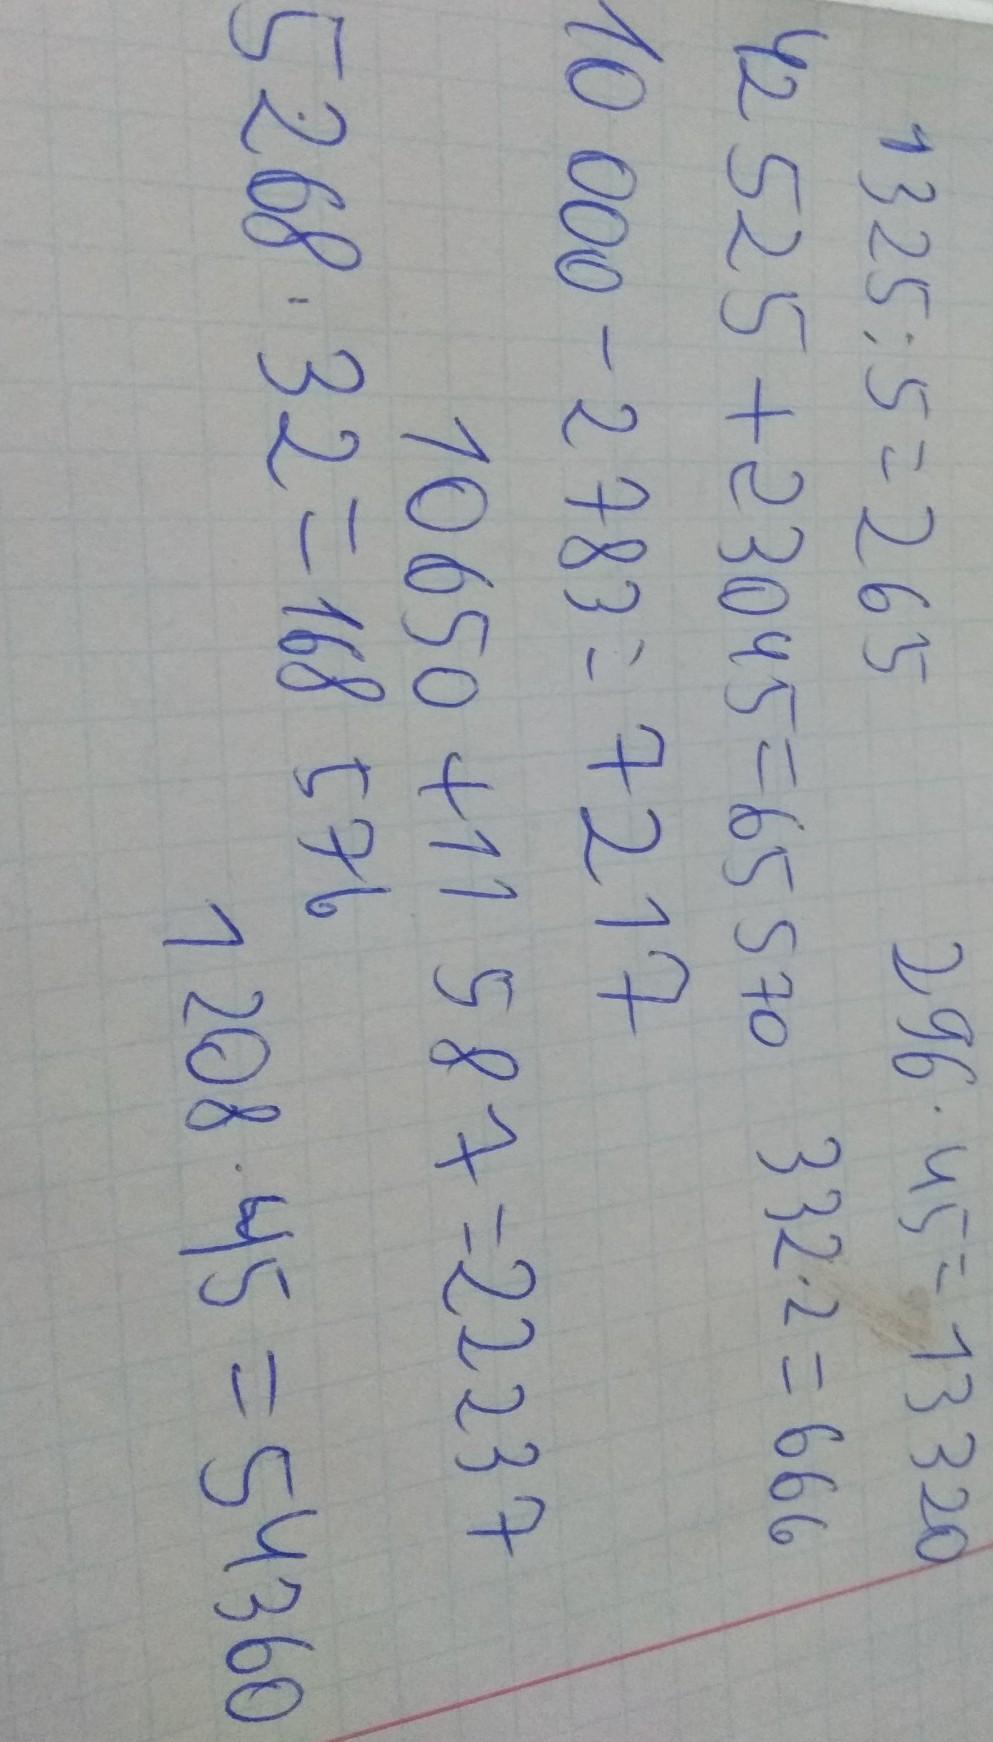 1325:5=265 296·45=13 320
42 525+23045=65 570 332·2=666
10 000-2 783=7217
10650+11 587=22237
5268·32=168 576
1 208·45=54360